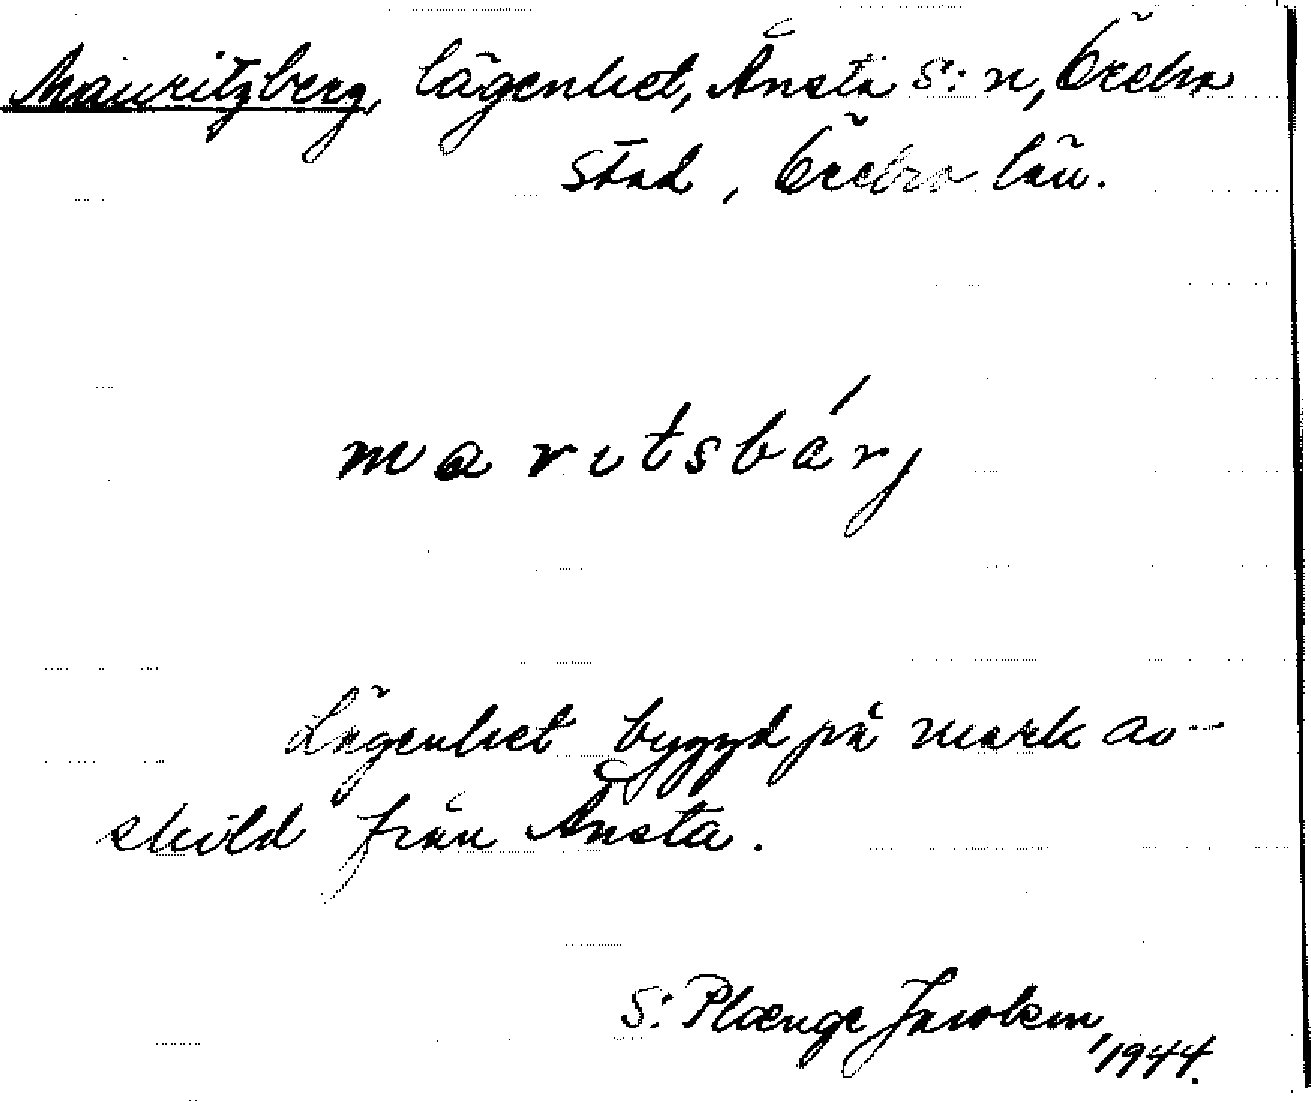 Mauritzberg, lägenhet, Ånsta s:n, Örebro
stad, Örebro län.
marıtsbárj
Lägenhet byggd på mark av-
skild från Ånsta.
S: Plænge Jacobson,
1944.